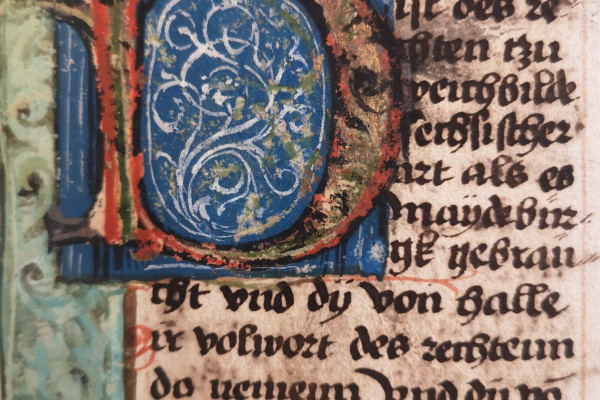 D
ist des re-
chten tzu
weichbilde
sechsischer
art als es
maydebur-
gk gebrau
cht vnd dy von halle
ir volwort des rechtenn
do nemenn vnd dy vo